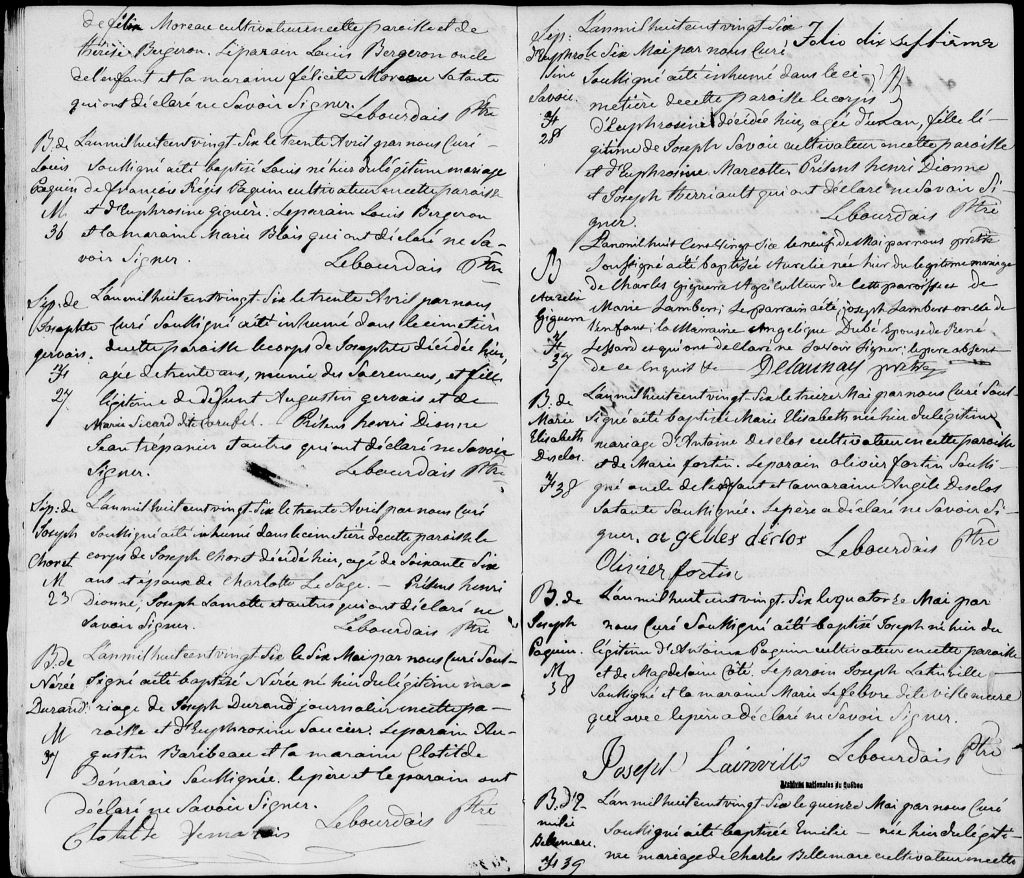 de félix Moreau cultivateur en cette paroisse et de
thérèse Bergeron. Le parain Louis Bergeron oncle
de l'enfant et la maraine félicité Moreau sa tante
qui ont déclaré ne Savoir Signer.
Lebourdais Ptre
B. de
Louis
Paquin
M
36
L'an mil huit cent vingt-Six le trente Avril par nous Curé
Soussigné a été baptisé Louis né hier du légitime mariage
de françois Régis Paquin cultivateur en cette paroisse
et d'Euphrosine Giguère. Le parain Louis Bergeron
et la maraine Marie Blais qui ont déclaré ne Sa-
voir Signer.
Lebourdais Ptre
Sep: de
Josephte
gervais.
27
L'an mil huit cent vingt-Six le trente Avril par nous
Curé Soussigné a été inhumé dans le cimetière
de cette paroisse le corps de Josephte décédée hier
agée de trente ans, munie des Sacremens, et fille
légitime de défunt Augustin gervais et de
Marie Sicard Présens henri Dionne
Jean trépanier et autres qui ont déclaré ne Savoir
Signer.
Lebourdais Ptre
Sep: de
Joseph
Choret
M
23
L'an mil huit cent vingt-Six le trente Avril par nous Curé
Soussigné a été inhumé dans le cimetière de cette paroisse le
corps de Joseph Choret décédé hier, agé de Soixante Six
ans et époux de Charlotte Le Sage. — Présens henri
Dionne, Joseph Lamotte et autres qui ont déclaré ne
Savoir Signer.
Lebourdais Ptre
B. de
Nérée
Durand
M
37
L'an mil huit cent vingt Six le Six Mai par nous Curé Sous-
signé a été baptisé Nérée né hier du légitime ma-
riage de Joseph Durand journalier en cette pa-
roisse et d'Euphrosine Saucier. Le parain Au-
gustin Baribeau et la maraine Clotilde
Démarais Soussignée, le père et le parain ont
déclaré ne Savoir Signer.
Clotilde Lebourdais Ptre
Folio dix Septième
Sep:
d'Euphro-
sine
Savoie.
28
L'an mil huit cent vingt Six
le Six Mai par nous Curé
Soussigné a été inhumé dans le ci-
metière de cette paroisse le corps
d'Euphrosine décédée hier, agée d'un an, fille lé-
gitime de Joseph Savoie cultivateur en cette paroisse
et d'Euphrosine Marcotte. Présent henri Dionne
et Joseph therriault qui ont déclaré ne Savoir Si-
gner.
Lebourdais Ptre
B
Aurelie
Giguerre
37
L'an mil huit Cent Vingt Six le neuf de Mai par nous prêtre
Soussigné a été baptisée Aurelie née hier du legitime mariage
de Charles Giguerre Agriculteur de Cette paroisse et de
Marie Lambert; Le parrain a été Joseph Lambert oncle de
l'Enfant; la Marraine Angelique Dubé Epouse de René
Lessard et qui ont declaré ne Savoir Signer; le pere absent
de ce Enquis &c
Delaunay prêtre
B. de
Marie
Elisabeth
Desclos.
38
L'an mil huit cent vingt-Six le treize Mai par nous Curé Sous-
Signé a été baptisée Marie Elisabeth née hier du légitime
mariage d'Antoine Desclos cultivateur en cette paroisse
et de Marie fortin. Le parain olivier fortin Soussi-
gné oncle de l'enfant et la maraine Angèle Desclos
Sa tante Soussignée. Le père a déclaré ne Savoir Si-
gner.
Lebourdais Ptre
Olivier fortin
B. de
Joseph
Paquin.
M
38
L'an mil huit cent vingt-Six le quatorze Mai par
nous Curé Soussigné a été baptisé Joseph né hier du
légitime d'Antoine Paquin cultivateur en cette paroisse
et de Magdelaine Coté. Le parain Joseph
Soussigné et la maraine Marie Lefebvre dite villemure
qui avec le père a déclaré ne Savoir Signer.
Joseph Lebourdais Ptre
Archives nationales du Québec
B. d'E-
milie
Bellemare.
39
L'an mil huit cent vingt-Six le quinze Mai par nous Curé
Soussigné a été baptisée Emilie — née hier du légiti-
me mariage de Charles Bellemare cultivateur en cette